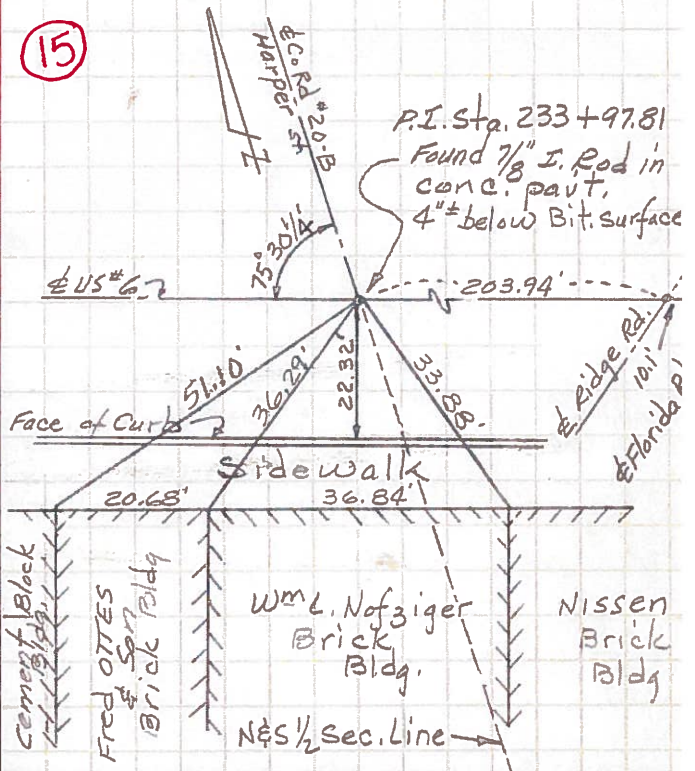 15
℄ Co Rd #20-B
Harper St.
P.I. Sta. 233+97.81
Found 7/8" I. Rod in
conc. pavt.
4"± below Bit. Surface
75° 30 1/4'
℄ US #6
203.94'
51.10'
36.29'
22.32'
33.88'
℄ Ridge Rd.
10.1'
℄ Florida
Face of Curb
Sidewalk
20.68'
36.84'
Cement Block
Bldg.
Fred OTTES
& Son
Brick Bldg
Wm L. Nofziger
Brick
Bldg.
Nissen
Brick
Bldg
N&S 1/2 Sec. Line